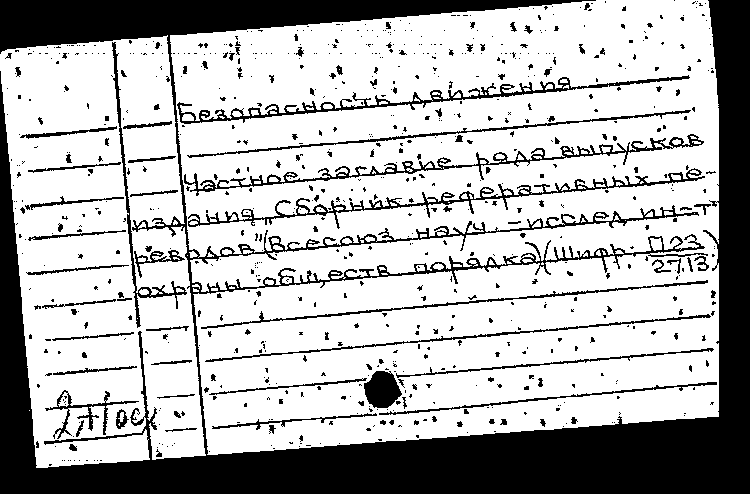 Безопасность движения
Частное заглавие рода выпусков
издания "Сборник реферативных пе-
реводов" (Всесоюз. науч.-исслед. ин-т
охраны обществ. порядка) (Шифр: П23/2713)